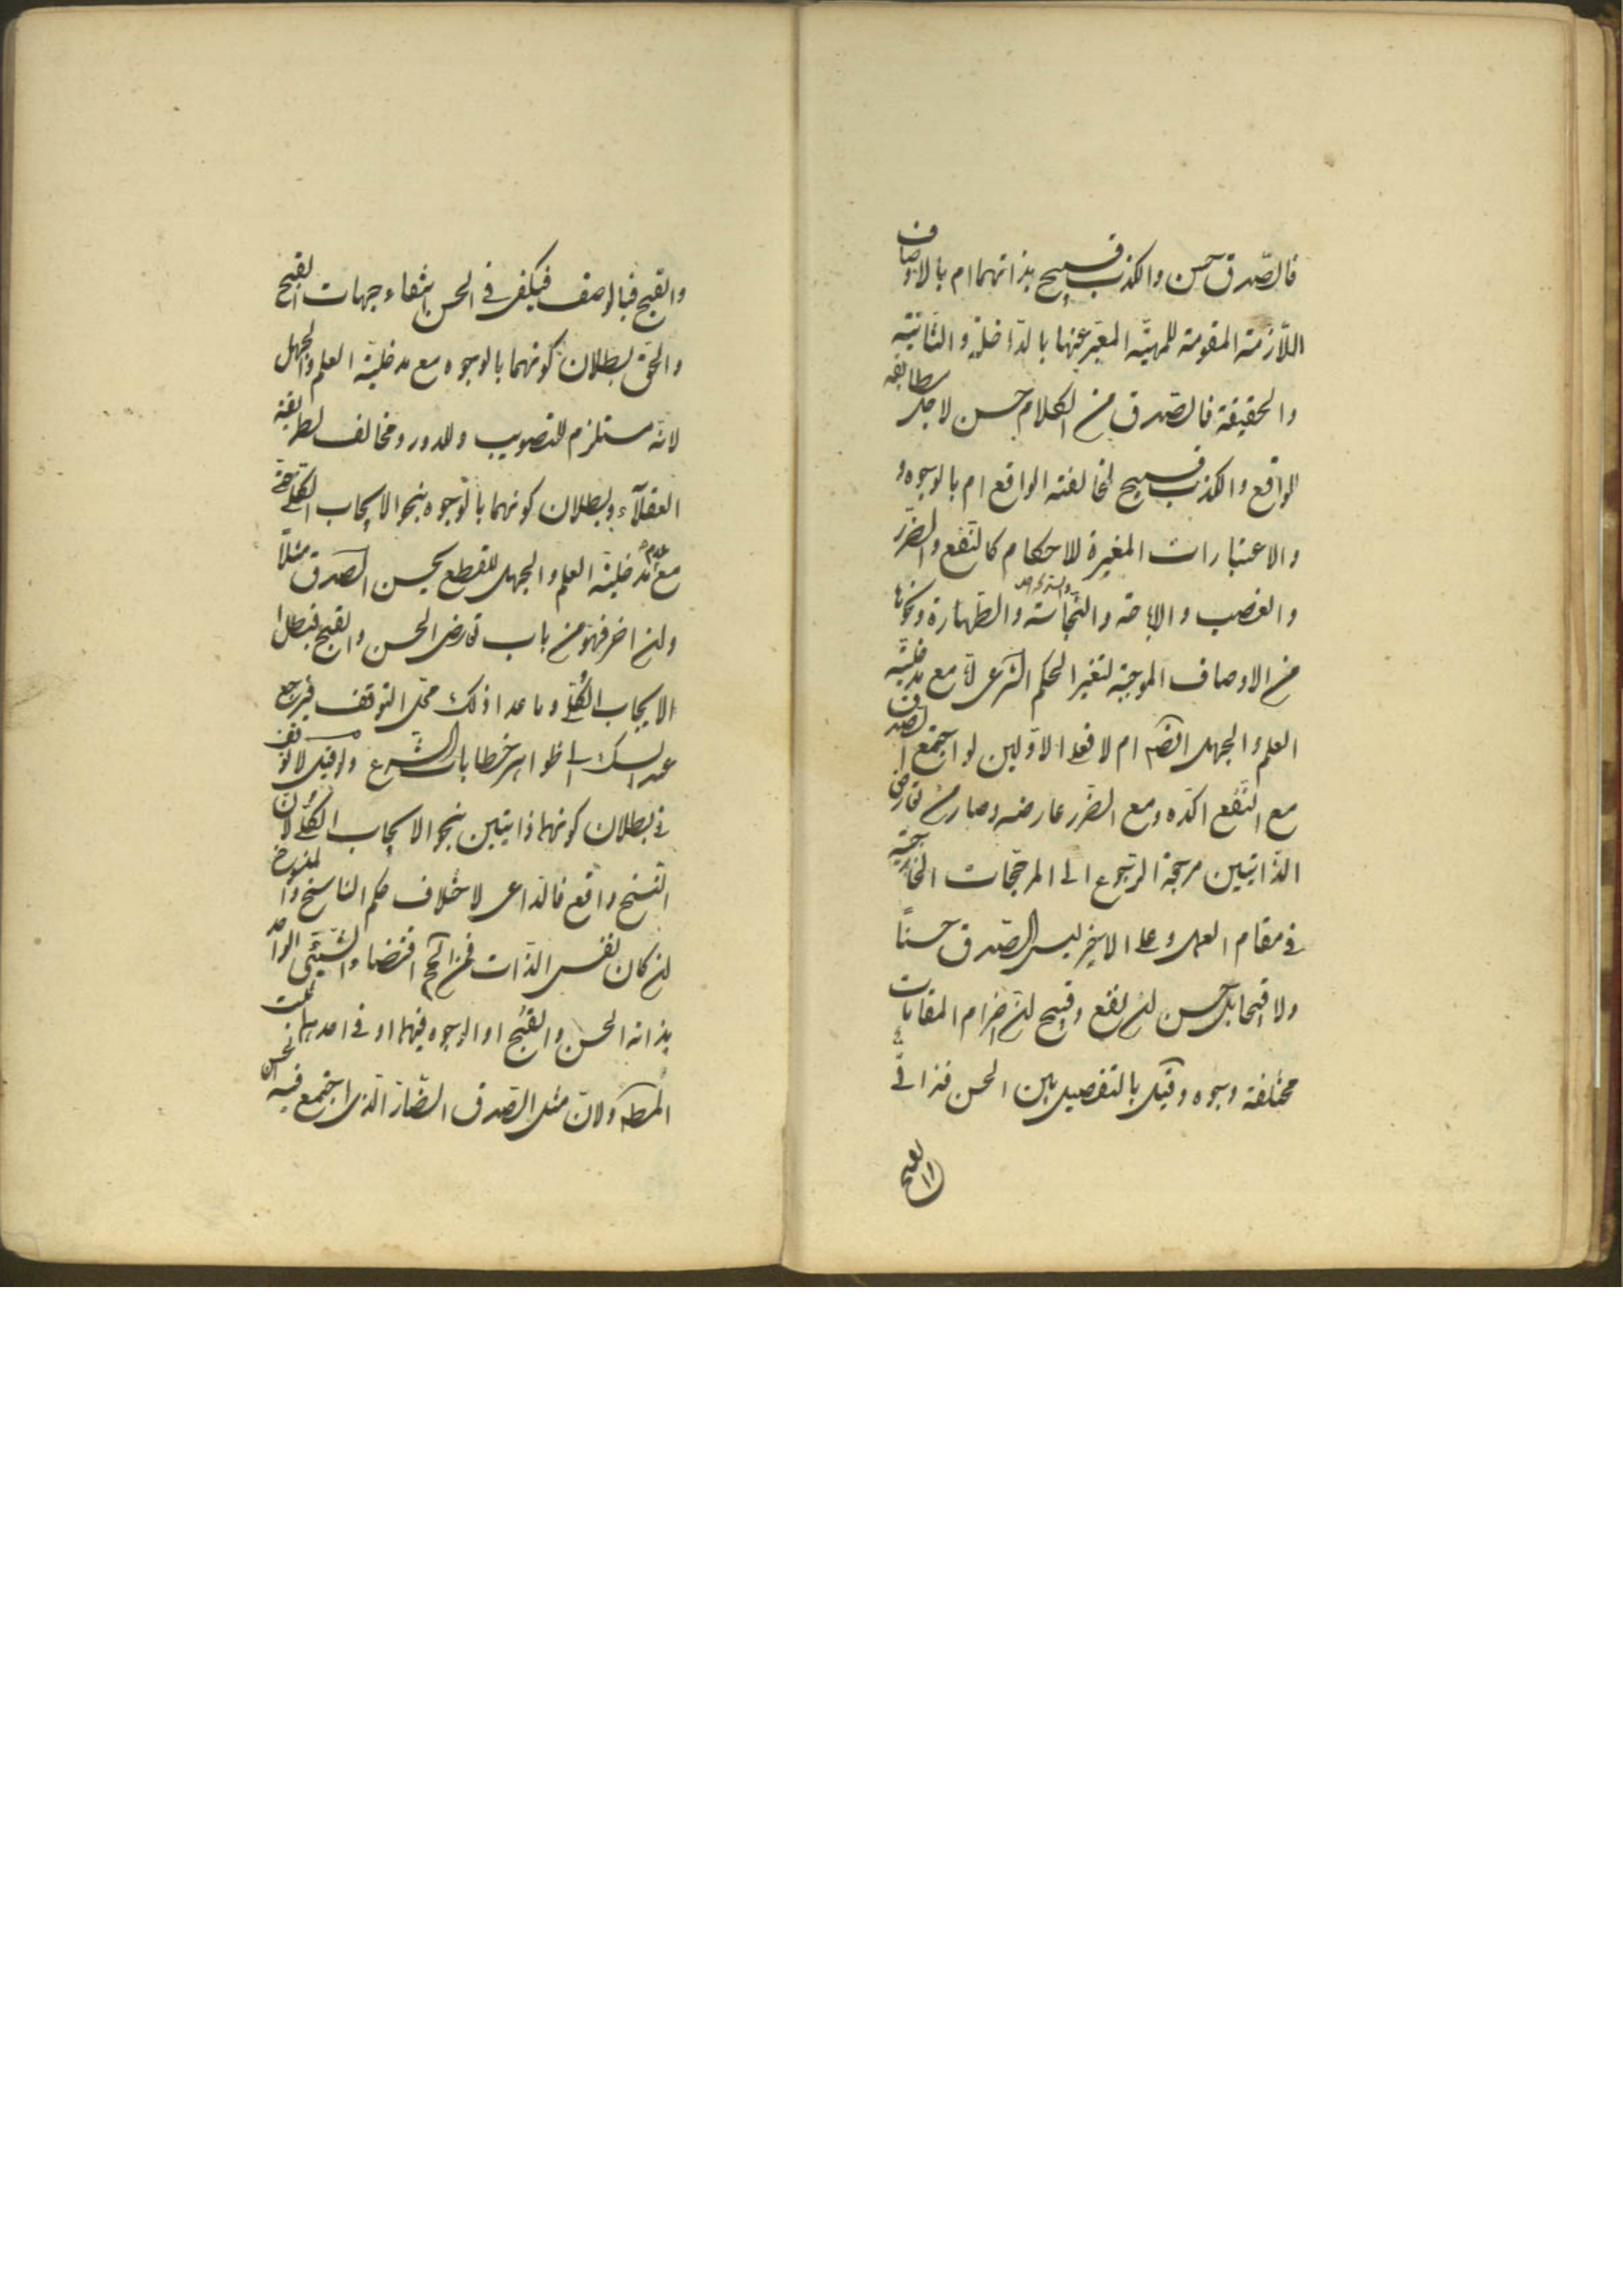 فالصّدق حسن والكذب قبيح بذاتهما ام بالاوصاف
اللّازمة المقومة للمهيّة المعبّر عنها بالدّاخلة والثّابتة
والحقيقة فالصّدق من الكلام حسن لاجل مطابقة
الواقع والكذب قبيح لمخالفته الواقع ام بالوجوه و
والاعتبارات المغيرة للاحكام كالنّفع والضّرر
والغصب والاباحة والنّجاسة والطّهارة ونحوها
من الاوصاف الموجبة لتغير الحكم الشّرعى مع مدخليّة
العلم والجهل ام لا فعلى الاوّلين لو اجتمع الصّدق
مع النّفع اكّده ومع الضّرر عارضه وصار من تعارض
الذّاتيّين مرجحة الرّجوع الى المرجّحات الخارجيّة
فى مقام العمل وعلى الاخير ليس الصّدق حسنًا
ولا قبيحا بل حسن ان نفع وقبيح ان اضرّ ام المقامات
مختلفة وجوه وقيل بالتفصيل بين الحسن فذاتىّ
والقبيح
والقبح فبالوصف فيكفى فى الحسن انتفاء جهات القبح
والحقّ بطلان كونهما بالوجوه مع مدخليّة العلم والجهل
لانّه مستلزم للتصويب وللدور ومخالف لطريقة
العقلآء وبطلان كونهما بالوجوه بنحو الايجاب الكلّى حتّى
مع عدم مدخليّة العلم والجهل للقطع بحسن الصّدق مثلًا
وان اضرّ فهو من باب تعارض الحسن والقبح فبطل
الايجاب الكلّى وما عدا ذلك محلّ التوقف فيرجع
عند الشك الى ظواهر خطابات الشّرع ولو قيل لا توقف
فى بطلان كونهما ذاتيّين بنحو الايجاب الكلّى لانّ
النّسخ واقع فالدّاعى لاختلاف حكم الناسخ والمنسوخ
ان كان نفس الذّات فمن اقتضاء الشّيئ الواحد
بذاته الحسن والقبح او الوجوه فيهما او فى احدهما ثبت
المط ولانّ مثل الصّدق الضّارّ الّذى اجتمع فيه الحسن